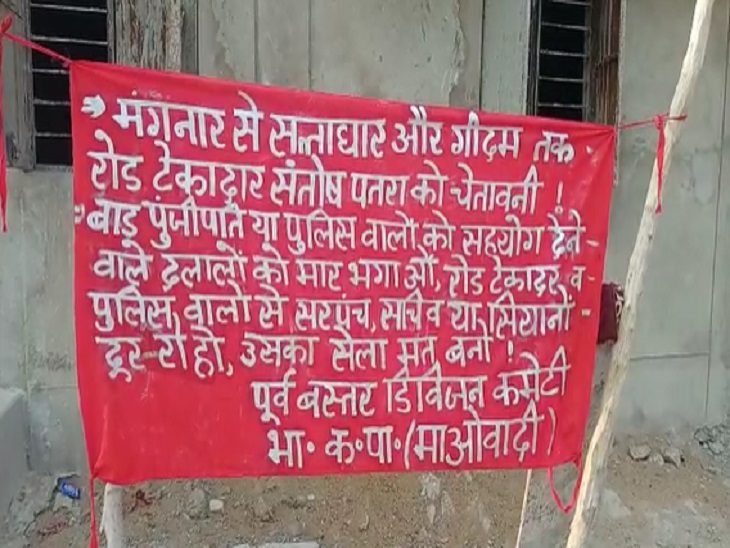 मंगनार से सत्ताघार और गीदम तक
रोड टेकादार संतोष पतरा को चेतावनी !
बाड़ पुंजीपति या पुलिस वालों को सहयोग देने
वाले दलालों को मार भगा ओ, रोड टेकादार व
पुलिस वालो से सरपंच, सचिव या सियानों
दूर रो हो, उसका सेला मत बनो !
पूर्व बस्तर डिविजन कमेटी
भा॰ क॰ पा॰ (माओवादी)